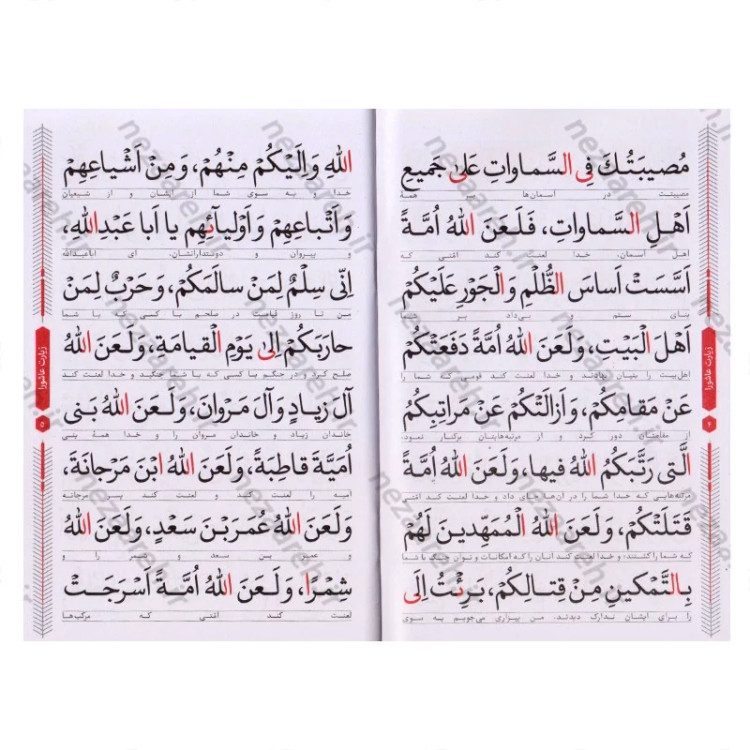 مُصيبَتُكَ فِى السَّماواتِ عَلى جَميعِ
مصیبتت در آسمان‌ها بر همهٔ
اَهْلِ السَّماواتِ، فَلَعَنَ اللهُ اُمَّةً
اهل آسمان. خدا لعنت کند امتی که
اَسَّسَتْ اَساسَ الظُّلْمِ وَالْجَوْرِ عَلَيْكُمْ
بنای ستم بی‌داد بر شما
اَهْلَ الْبَيْتِ، وَلَعَنَ اللهُ اُمَّةً دَفَعَتْكُمْ
اهل‌بیت را بنیان نهادند و خدا لعنت کند قومی شما را
عَنْ مَقامِكُمْ، وَاَزالَتْكُمْ عَنْ مَراتِبِكُمُ
از مقامتان دور کرد و از مرتبه‌هایتان برکنار نمود،
الَّتى رَتَّبَكُمُ اللهُ فيها، وَلَعَنَ اللهُ اُمَّةً
مرتبه‌هایی که خدا شما را در آن‌ها جای داد و خدا لعنت کند امتی
قَتَلَتْكُمْ، وَلَعَنَ اللهُ الْمُمَهِّدينَ لَهُمْ
که شما را کشتند، و خدا لعنت کند آنان را که امکانات و توان جنگ با شما
بِالتَّمْكينِ مِنْ قِتالِكُمْ، بَرِئْتُ اِلَى
را برای ایشان تدارک دیدند. من بیزاری می‌جویم به سوی
زیارت عاشورا
۴
اللهِ وَاِلَيْكُمْ مِنْهُمْ، وَمِنْ اَشْياعِهِمْ
خدا و به سوی شما از ایشان و از شیعیان
وَاَتْباعِهِمْ وَاَوْلِيآئِهِم يا اَبا عَبْدِاللهِ،
و پیروان و دوستدارانشان. ای اباعبدالله
اِنّى سِلْمٌ لِمَنْ سالَمَكُمْ، وَحَرْبٌ لِمَنْ
من تا روز قیامت در صلحم با کسی که با شما
حارَبَكُمْ اِلى يَوْمِ الْقِيامَةِ، وَلَعَنَ اللهُ
صلح کرد و در جنگم با کسی که با شما جنگید و خدا لعنت کند
آلَ زِيادٍ وَآلَ مَرْوانَ، وَلَعَنَ اللهُ بَنى
خاندان زیاد و خاندان مروان را و خدا همهٔ بنی
اُمَيَّةَ قاطِبَةً، وَلَعَنَ اللهُ ابْنَ مَرْجانَةَ،
امیه را لعنت کند و لعنت کند پسر مرجانه
وَلَعَنَ اللهُ عُمَرَبْنَ سَعْدٍ، وَلَعَنَ اللهُ
و عمر بن سعد و شمر را و
شِمْرًا، وَلَعَنَ اللهُ اُمَّةً اَسْرَجَتْ
لعنت کند امتی که مرکب‌ها
زیارت عاشورا
۵
nezareh.ir